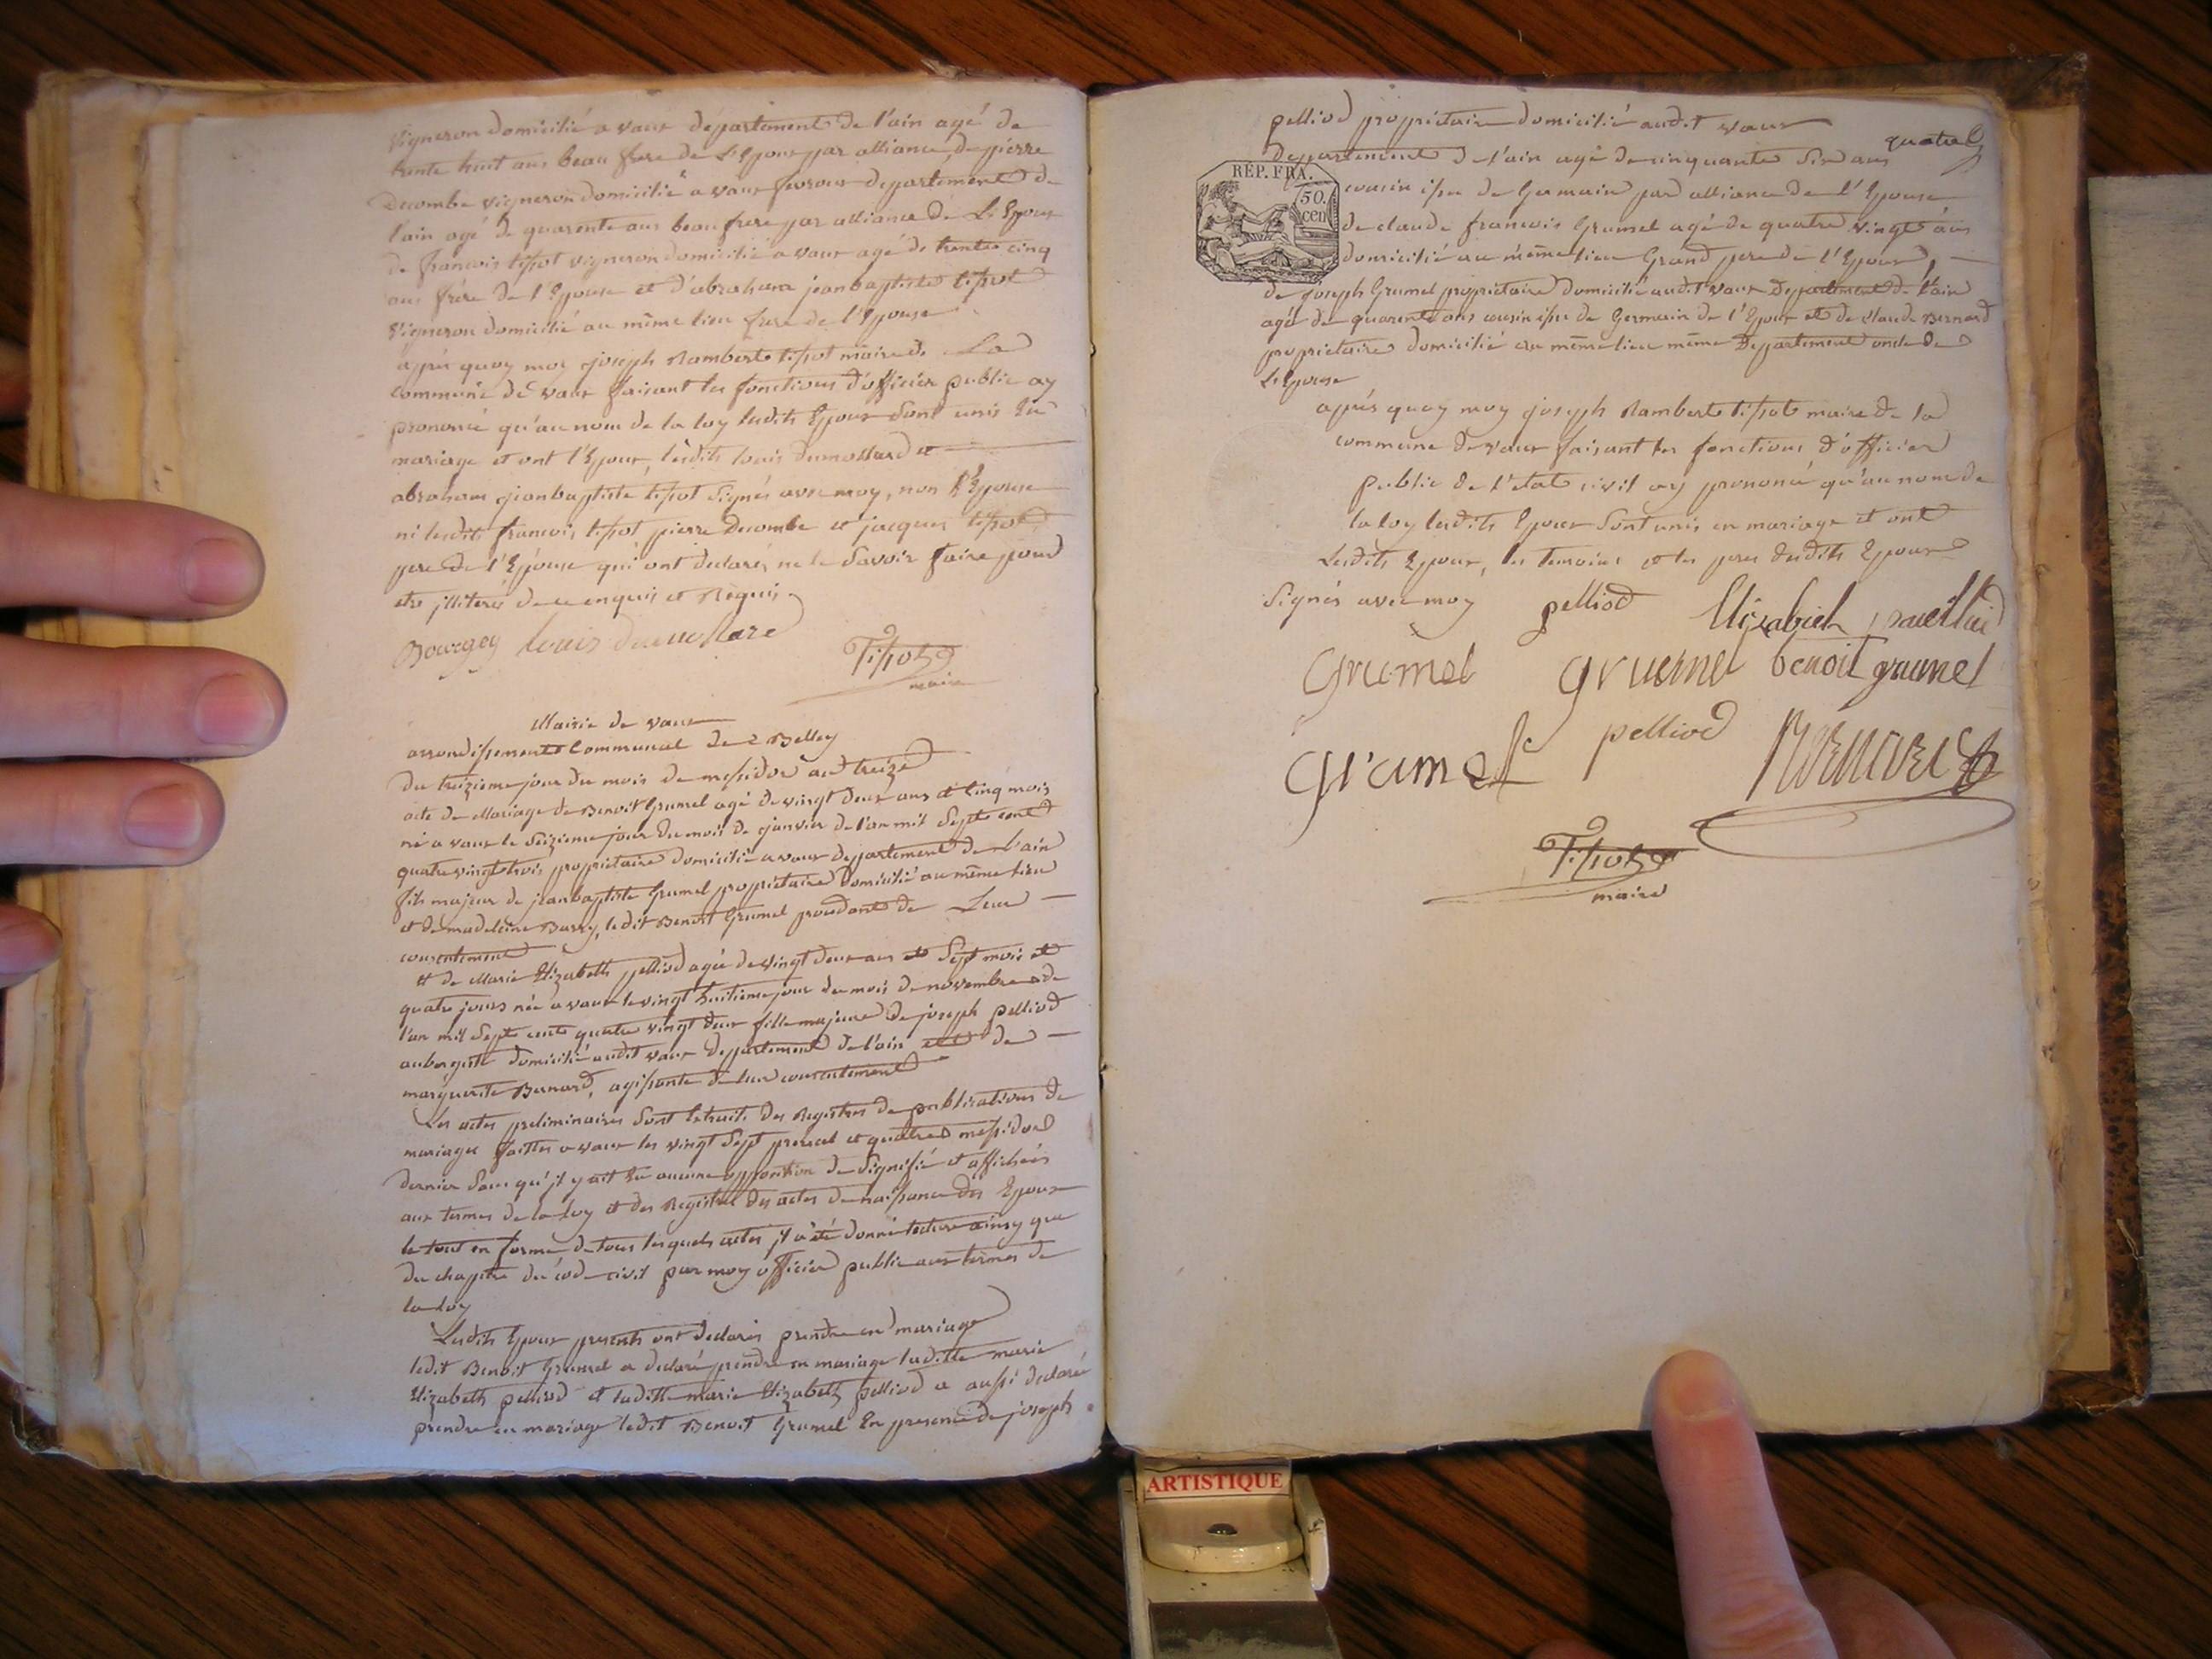 vigneron domicilié a vaux département de l'ain agé de
trente huit ans beau frere de L'Epoux par alliance, de pierre
Decombe vigneron domicilié a vaux departement de
l'ain agé de quarente ans beau frere par alliance de L'Epoux
de francois tissot vigneron domicilié a vaux agé de trente cinq
ans frére de l'Epouse et d'abraham jeanbaptiste tissot
vigneron domicilié au même lieu frere de l'Epouse
aprés quoy moy joseph Rambert tissot maire de La
commune de vaux faisant les fonctions d'officier public ay
prononcé qu'au nom de la loy lesdits Epoux sont unis En
mariage et ont l'Epoux, lesdits louis dumollard et
abraham jeanbaptiste tissot signés avec moy, non l'Epouse
ni lesdits francois tissot pierre Decombe et jacques tissot
pere de l'Epouse qui ont declarés ne le savoir faire pour
etre jlliterés de ce enquis et Requis
Bourgey louis dumollard
Tissot
maire
Mairie de vaux
arrondissement Communal de Belley
Du treizieme jour du mois de messidor an treize
acte de Mariage de Benoit Grumel agé de vingt deux ans et Cinq mois
né a vaux le seizieme jour du mois de janvier de l'an mil sept cent
quatre vingt trois, propriétaire domicilié a vaux departement de l'ain
fils majeur de jeanbaptiste Grumel propriétaire domicilié au même lieu
et de madeleine Barry, ledit Benoit Grumel procedant de Leur
consentement
et de Marie Elizabeth pelliod agée de vingt deux ans et sept mois et
quatre jours née a vaux le vingt huitieme jour du mois de novembre de
l'an mil sept cents quatre vingt deux fille majeure de joseph pelliod
aubergiste domicilié audit vaux departement de l'ain et de
marguerite Bernard, agissante de leur consentement
Les actes preliminaires sont Extraits des Registres de publications de
mariages faittes a vaux les vingt sept prereal et quatre messidor
dernier sans qu'il y ait Eu aucune opposition de signifié et affichées
aux termes de la loy et des Registres des actes de naissance des Epoux
le tout en forme de tous lesquels actes jl a été donné lecture ainsy que
du chapitre du code civil par moy officier public aux termes de
la loy
Lesdits Epoux presents ont declarés prendre en mariage
ledit Benoit Grumel a declaré prendre en mariage laditte marie
Elizabeth pelliod et laditte marie Elizabeth pelliod a aussi declaré
prendre en mariage ledit Benoit Grumel En presence de joseph
quatre
pelliod propriétaire domicilié audit vaux
Departement de l'ain agé de cinquante six ans
RÉP. FRA.
50.
cen
cousin issu de Germain par alliance de l'Epouse
de claude francois Grumel agé de quatre vingts ans
domicilié au même lieu Grand pere de l'Epoux,
de joseph Grumel propriétaire domicilié audit vaux Departement de l'ain
agé de quarente ans cousin issu de Germain de l'Epoux et de claude Bernard
propriétaire domicilié au même lieu même Departement oncle de
L'Epouse
aprés quoy moy joseph Rambert tissot maire de la
commune de vaux faisant les fonctions d'officier
public de l'etat civil ay prononcé qu'au nom de
la loy lesdits Epoux sont unis en mariage et ont
Lesdits Epoux, les temoins et les peres desdits Epoux
signés avec moy pelliod Elizabieh
Grumel grumel benoit grumel
Grumel pelliod Bernard
Tissot
maire
ARTISTIQUE